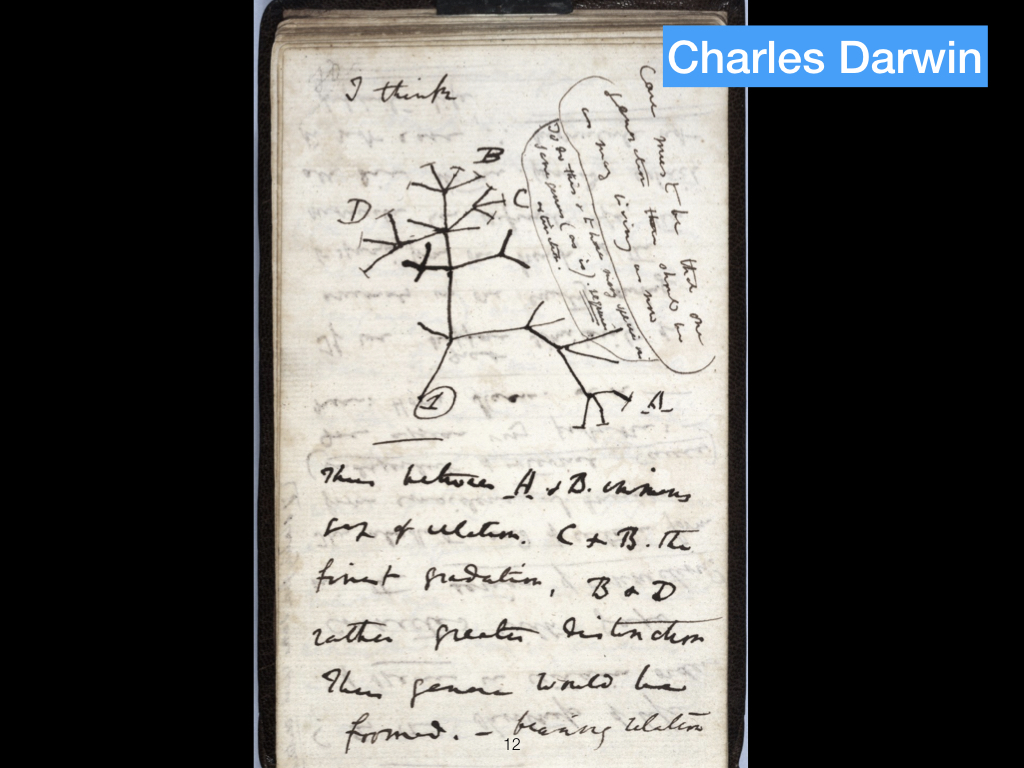 Charles Darwin
I think
Case must be that one
generation then should be
as many living as now
To do this & to have many species in
same genus (as is). requires
extinction.
B
C
D
A
1
Thus between A & B. immens
gap of relation. C & B. the
finest gradation, B & D
rather greater distinction
Thus genera would be
formed. — bearing relation
12